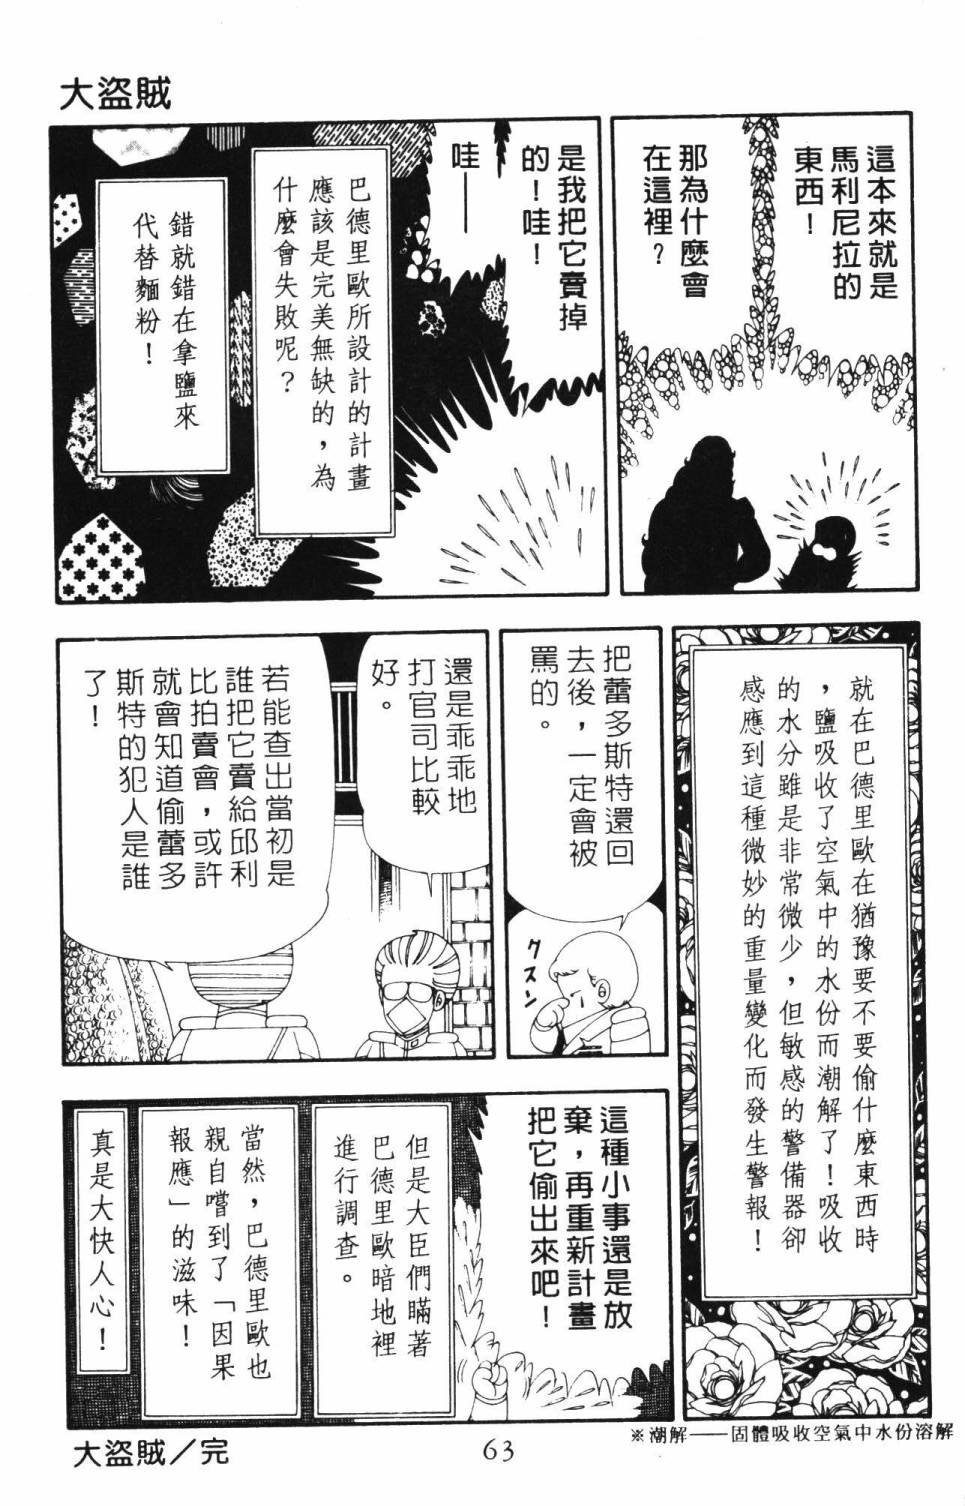 大盜賊
這本來就是
馬利尼拉的
東西！
那為什麼會
在這裡？
是我把它賣掉
的！哇！
哇——
巴德里歐所設計的計畫
應該是完美無缺的，為
什麼會失敗呢？
錯就錯在拿鹽來
代替麵粉！
就在巴德里歐在猶豫要不要偷什麼東西時
，鹽吸收了空氣中的水份而潮解了！吸收
的水分雖是非常微少，但敏感的警備器卻
感應到這種微妙的重量變化而發生警報！
把蕾多斯特還回
去後，一定會被
罵的。
クスン
還是乖乖地
打官司比較
好。
若能查出當初是
誰把它賣給邱利
比拍賣會，或許
就會知道偷蕾多
斯特的犯人是誰
了！
這種小事還是放
棄，再重新計畫
把它偷出來吧！
但是大臣們瞞著
巴德里歐暗地裡
進行調查。
當然，巴德里歐也
親自嚐到了「因果
報應」的滋味！
真是大快人心！
※潮解——固體吸收空氣中水份溶解
63
大盜賊／完